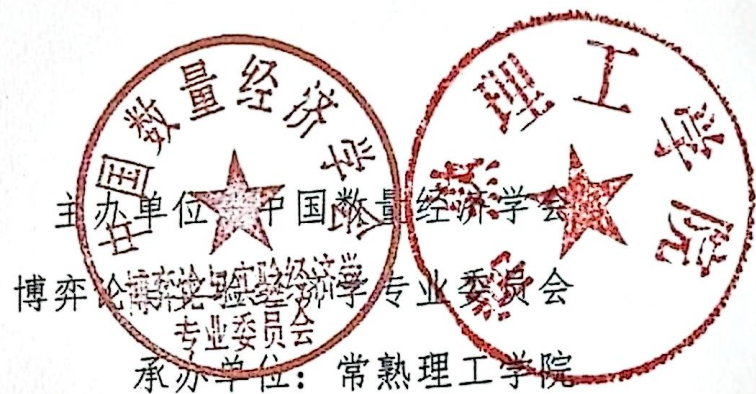 中国数量经济学会
博弈论与实验经济学
专业委员会
常熟理工学院
主办单位：中国数量经济学会
博弈论与实验经济学专业委员会
承办单位：常熟理工学院